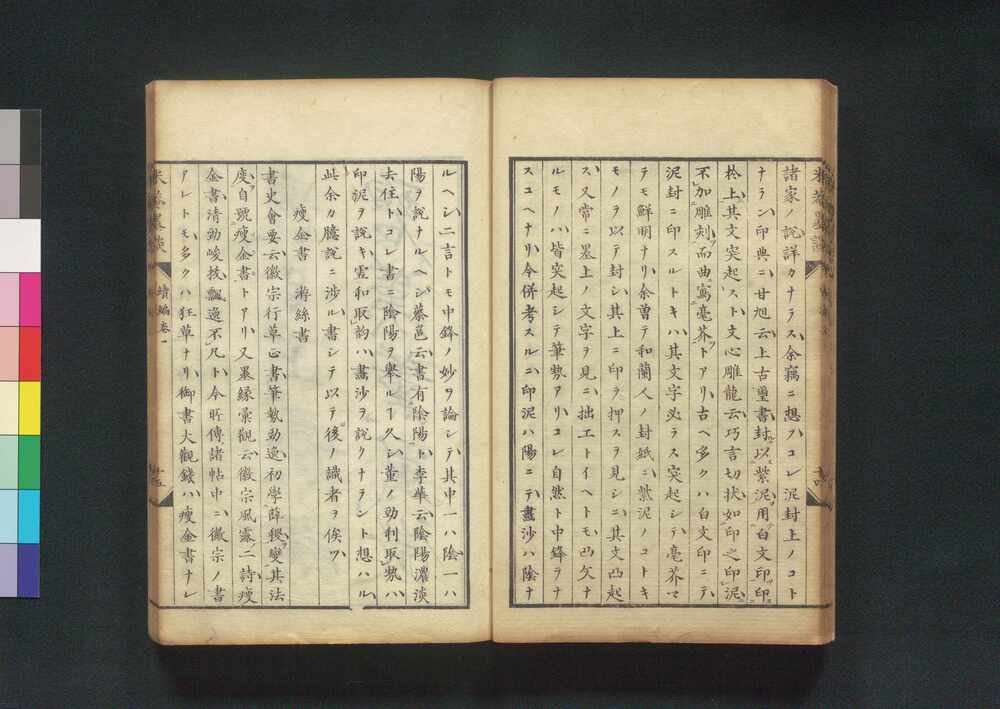 諸家ノ說詳カナラス余竊ニ想フ、コレ泥封上ノコト
ナラン、印典ニ、甘旭云、上古璽書封以紫泥、用白文印、印
於上、其文突起ス、ト、文心雕龍云、巧言切狀、如印之印泥、
不加雕刻、而曲寫毫芥、トアリ、古ヘ多クハ白文印ニテ、
泥封ニ印スルトキハ、其文字必ラス突起シテ、毫芥マ
テモ鮮明ナリ、余曾テ和蘭人ノ封紙ニ、紫泥ノコトキ
モノヲ以テ封シ、其上ニ印ヲ押スヲ見シニ、其文凸起
ス、又常ニ墨上ノ文字ヲ見ニ、拙工トイヘトモ、凸文ナ
ルモノハ、皆突起シテ筆勢アリ、コレ自然ト中鋒ヲナ
スユヘナリ、今併考スルニ、印泥ハ陽ニテ、畫沙ハ陰ナ
ルヘシ、二言トモ中鋒ノ妙ヲ論シテ、其中一ハ陰、一ハ
陽ヲ說ナルヘシ、蔡邕云、書有陰陽、ト、李華云、陰陽濃淡
去住、ト、コレ書ニ陰陽ヲ擧ル丁久シ、董ノ勁利取勢ハ、
印泥ヲ說キ、虛和取韵ハ、畫沙ヲ說クナラント想ハル、
此余カ臆說ニ涉ル、書シテ以テ後ノ識者ヲ俟ツ、
瘦金書 游絲書
書史會要云、徽宗行草正書、筆勢勁逸、初學薛稷、變其法
度、自號瘦金書、トアリ、又墨緣彙觀云、徽宗風露二詩、瘦
金書、清勁峻拔、飄逸不凡、ト、今所傳諸帖中ニ、徽宗ノ書
アレトモ、多クハ狂草ナリ、御書大觀錢ハ、瘦金書ナレ
續編卷一